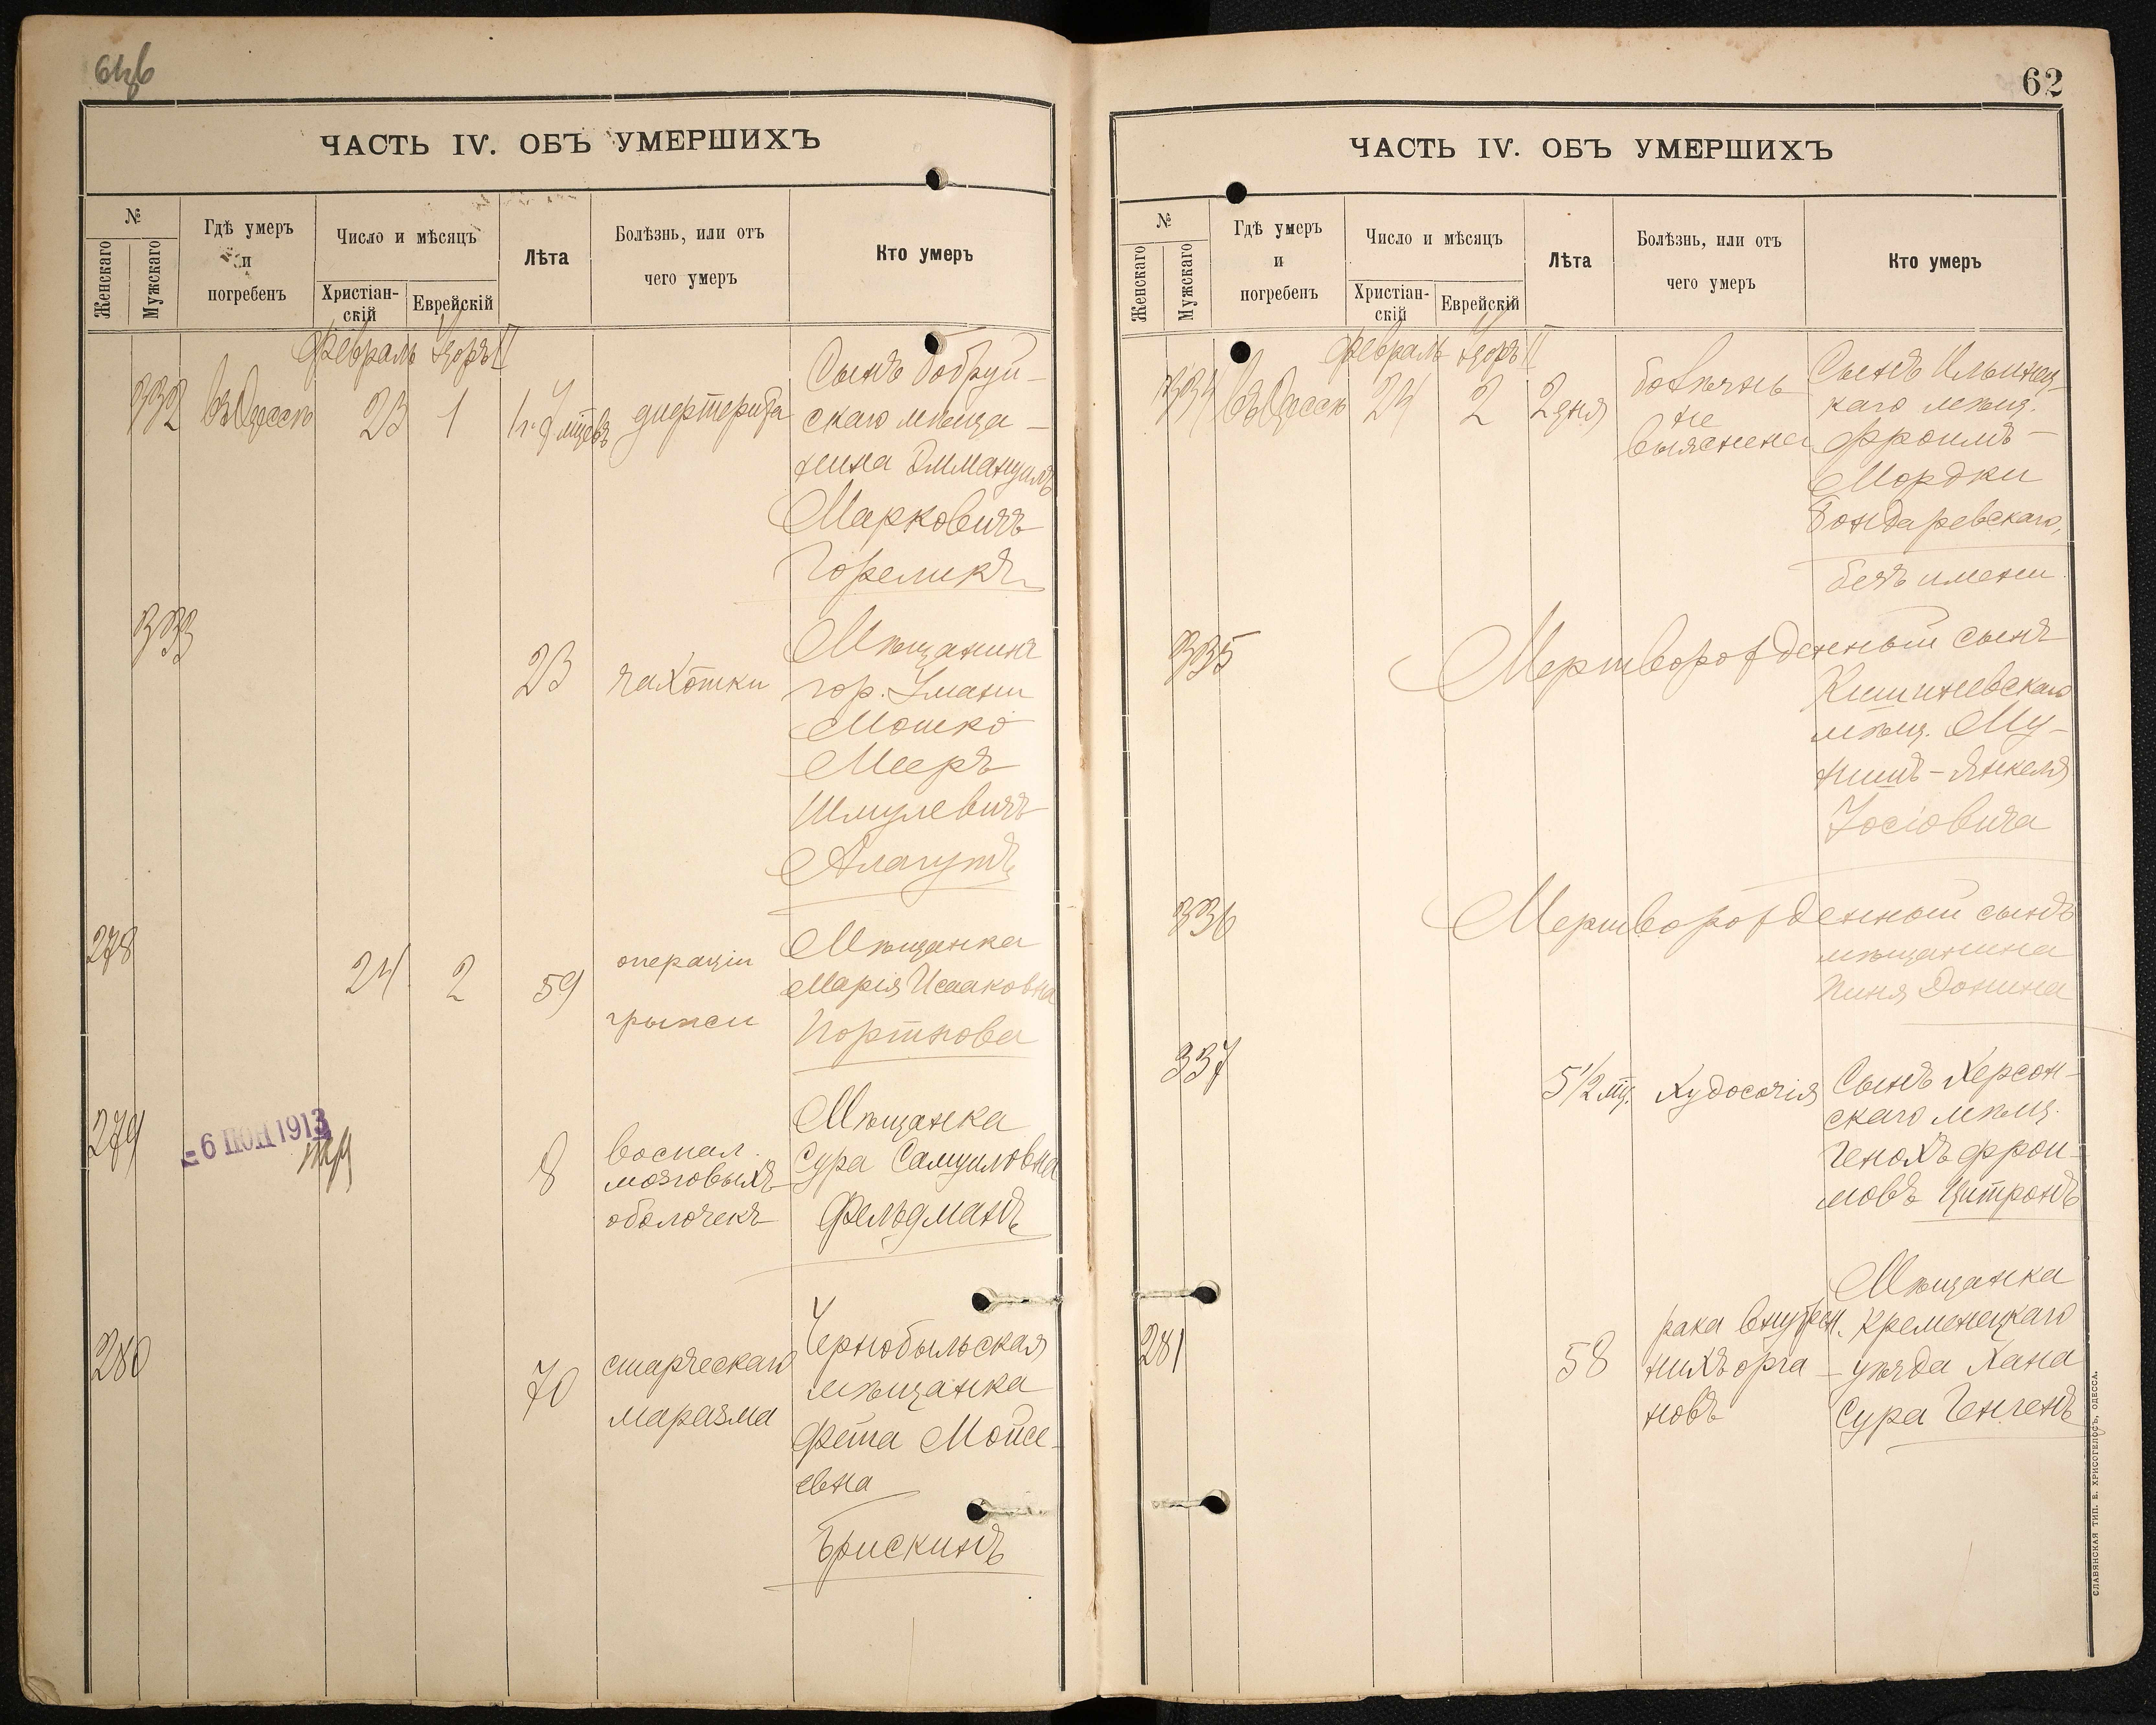 61об
ЧАСТЬ IV. ОБЪ УМЕРШИХЪ
№
Женскаго
Мужскаго
Гдѣ умеръ
и
погребенъ
Число и мѣсяцъ
Христіан-
скій
Еврейскій
Лѣта
Болѣзнь, или отъ
чего умеръ
Кто умеръ
Февраль Адоръ II
332 въ Одессѣ 23 1 1 г. 7 мцевъ дифтерита
Сынъ Бобруй-
скаго мѣща-
нина Эммануилъ
Марковичъ
Гореликъ
333
23 чахотки
Мѣщанинъ
гор. Умани
Мошко
Мееръ
Шмулевичъ
278
24 2 59
операціи
грыжи
Мѣщанка
Марія Исааковна
Портнова
279
6 ІЮН 1913
8
воспал.
мозговыхъ
оболочекъ
Мѣщанка
Сура Самуиловна
Фельдманъ
280
70
старческаго
маразма
Чернобыльская
мѣщанка
Фейга Мойсе-
евна
Брискинъ
62
ЧАСТЬ IV. ОБЪ УМЕРШИХЪ
№
Женскаго
Мужскаго
Гдѣ умеръ
и
погребенъ
Число и мѣсяцъ
Христіан-
скій
Еврейскій
Лѣта
Болѣзнь, или отъ
чего умеръ
Кто умеръ
Февраль Адоръ II
334 въ Одессѣ 24 2 2 дня
болѣзнь
не
выяснена
Сынъ Ильинец-
каго мѣщ.
Фроимъ-
Мордки
Бондаревскаго,
безъ имени
335
Мертворожденный сынъ
Кишиневскаго
мѣщ. Му-
нишъ-Янкеля
Іосіовича
336
Мертворожденный сынъ
мѣщанина
Пиня Донина
337
5 1/2 мц. Худосочія
Сынъ Херсон-
скаго мѣщ.
Генохъ Фрои-
мовъ Цитронъ
281
58
рака внутрен-
нихъ орга-
новъ
Мѣщанка
Кременецкаго
уѣзда Хана
Сура Генгенъ
СЛАВЯНСКАЯ ТИП. Е. ХРИСОГЕЛОСЪ, ОДЕССА.